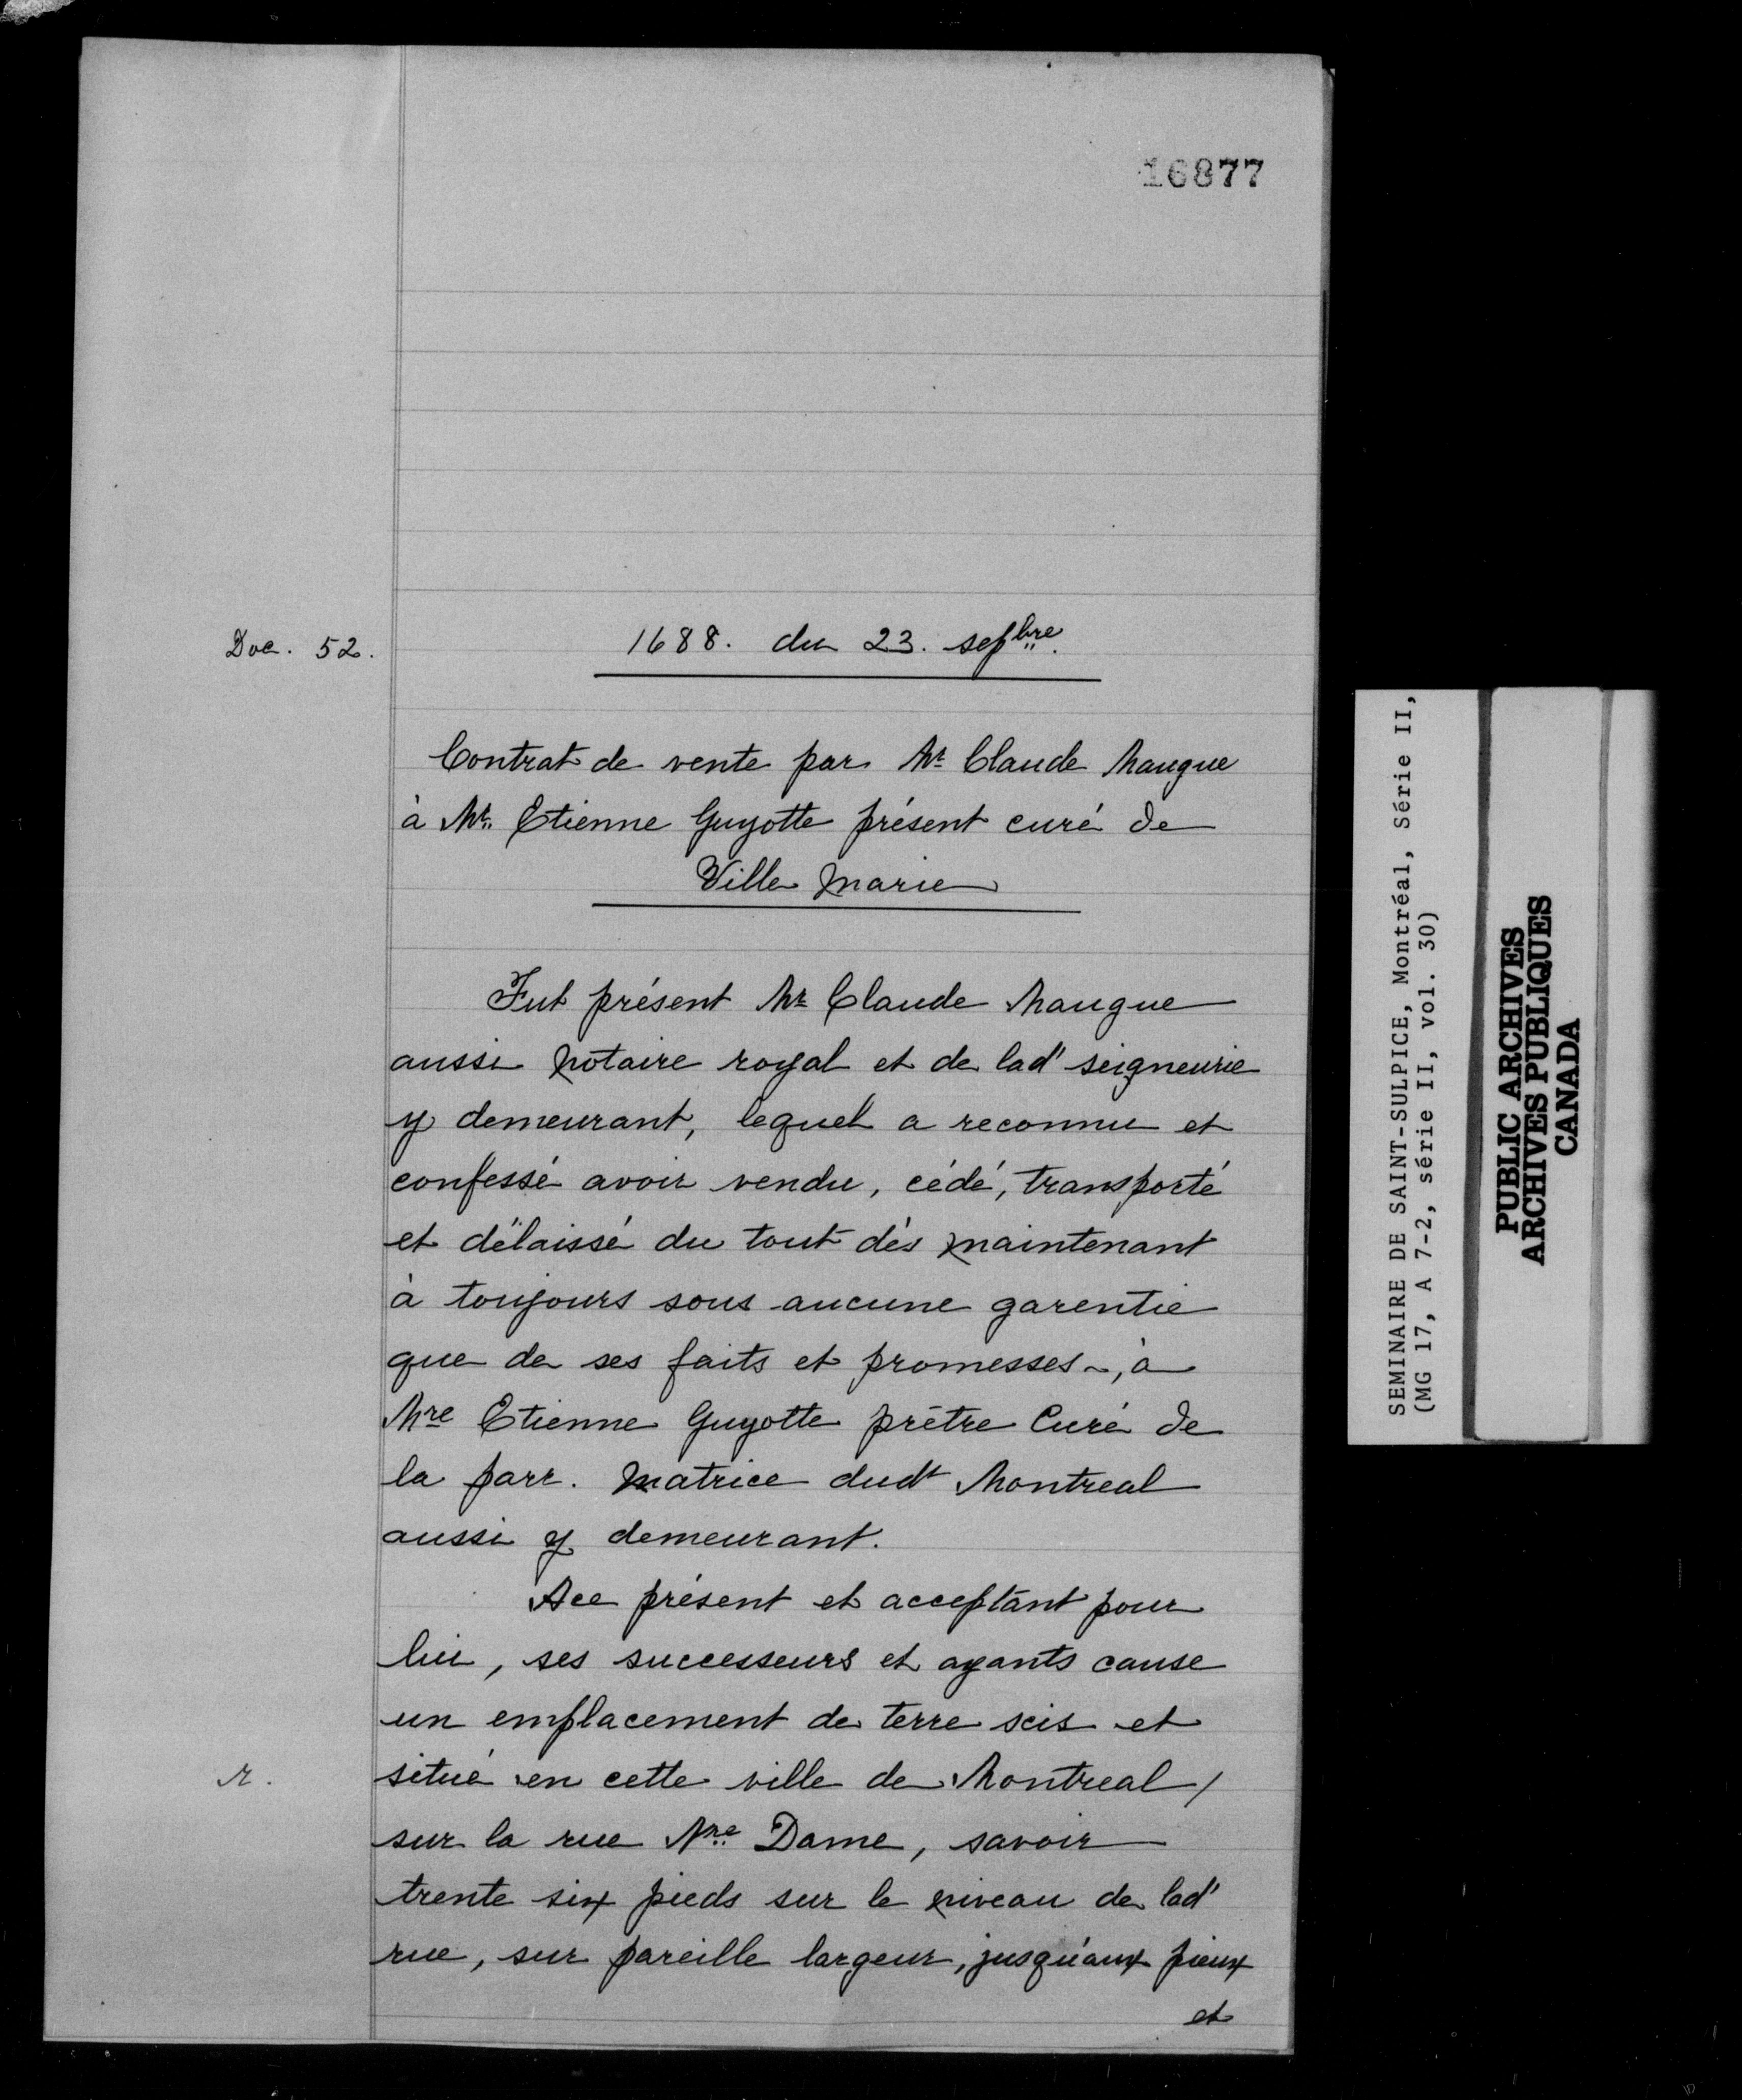 16877
Doc. 52.
1688. du 23. sepbre.
Contrat de vente par Mr Claude Maugue
à Mr. Etienne Guyotte présent curé de
Ville Marie
Fut présent Mr Claude Maugue
aussi notaire royal et de lad' seigneurie
y demeurant, lequel a reconnu et
confessé avoir vendu, cédé, transporté
et délaissé du tout dès maintenant
à toujours sous aucune garentie
que de ses faits et promesses, à
Mre Etienne Guyotte prêtre Curé de
la parr. Matrice dudt Montreal
aussi y demeurant.
Ace présent et acceptant pour
lui, ses successeurs et ayants cause
un emplacement de terre scis et
r.
situé en cette ville de Montreal /
sur la rue Nre Dame, savoir
trente six pieds sur le niveau de lad'
rue, sur pareille largeur, jusqu'aux pieux
et
SEMINAIRE DE SAINT-SULPICE, Montréal, Série II,
(MG 17, A 7-2, série II, vol. 30)
PUBLIC ARCHIVES
ARCHIVES PUBLIQUES
CANADA